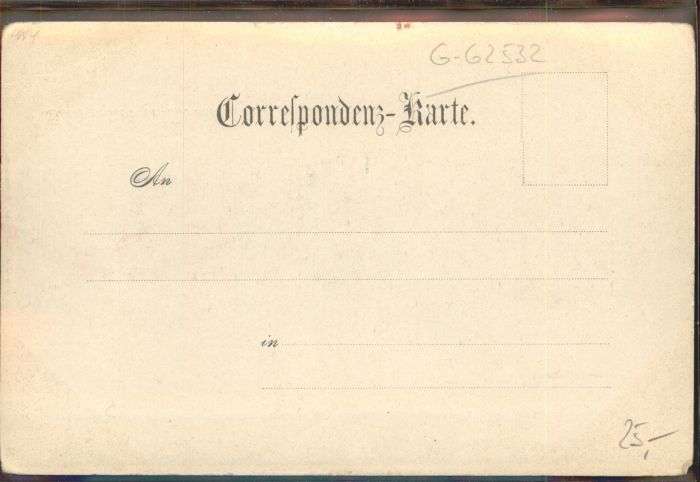 G-G2532
Correſpondenz-Karte.
An
in
25,-